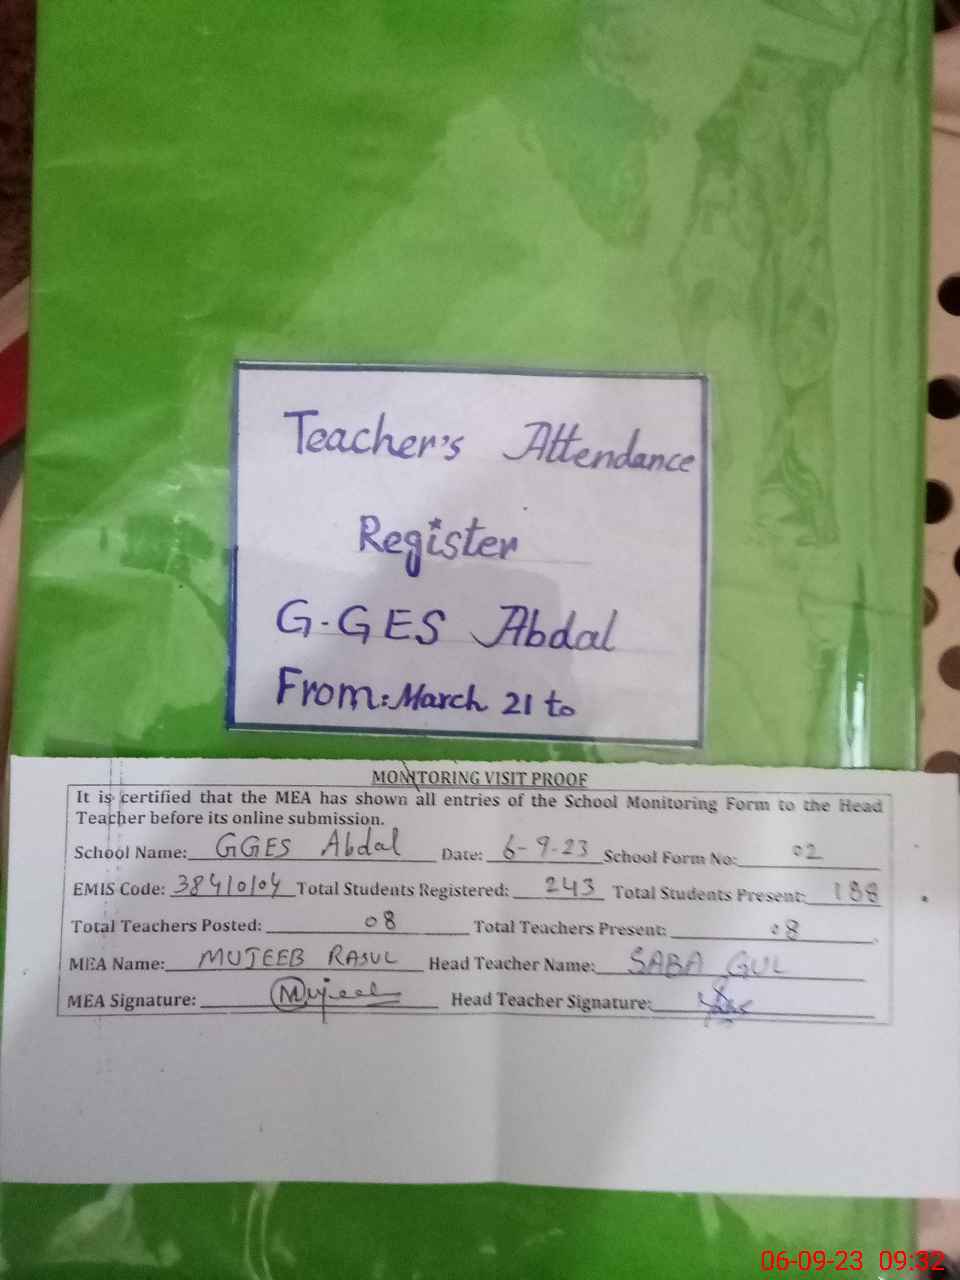 Teacher's Attendance
Register
G.GES Abdal
From: March 21 to
MONITORING VISIT PROOF
It is certified that the MEA has shown all entries of the School Monitoring Form to the Head
Teacher before its online submission.
School Name: GGES Abdal Date: 6-9-23 School Form No: 02
EMIS Code: 38410104 Total Students Registered: 243 Total Students Present: 188
Total Teachers Posted: 08 Total Teachers Present: 08
MEA Name: MUJEEB RASUL Head Teacher Name: SABA GUL
MEA Signature: Mujeeb Head Teacher Signature:
06-09-23 09:32